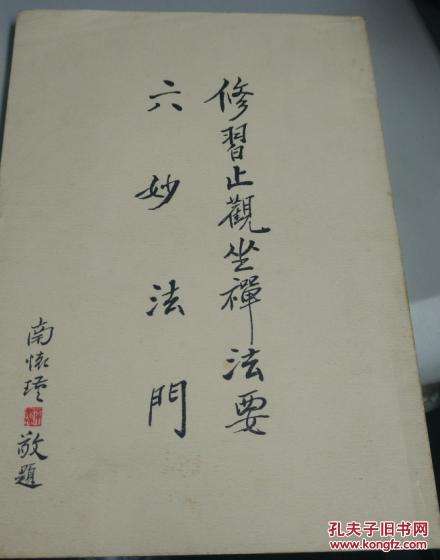 修習止觀坐禪法要
六妙法門
南懷瑾
敬題
孔夫子旧书网
www.kongfz.com